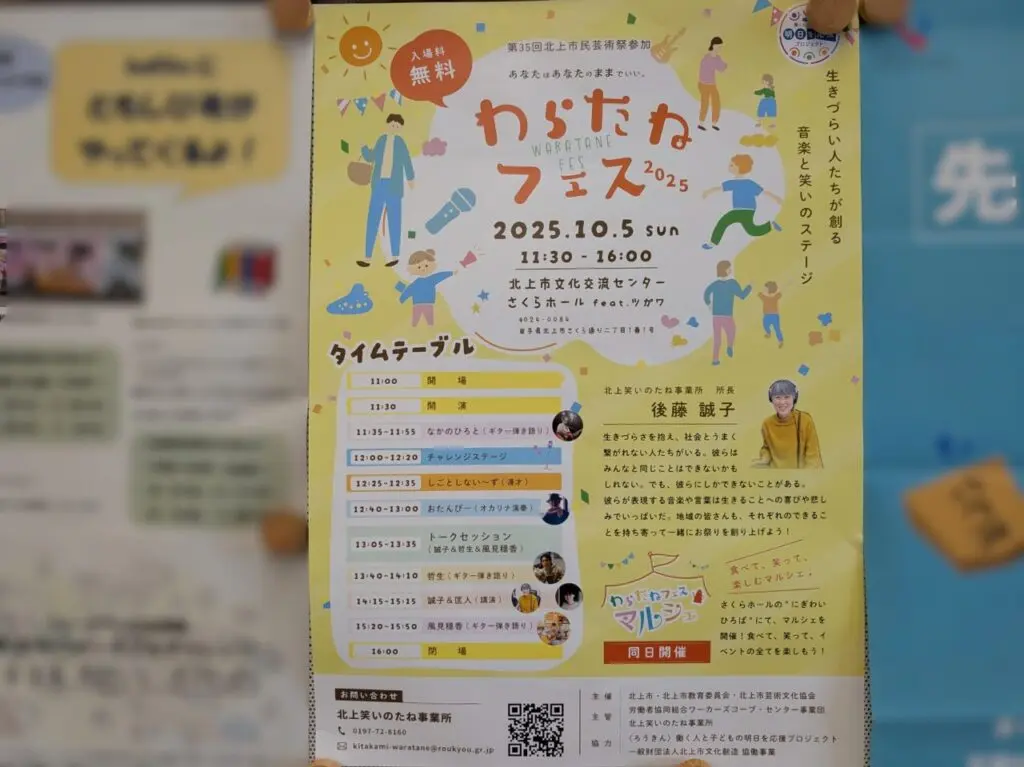 入場料
無料
第35回北上市民芸術祭参加
あなたはあなたのままでいい。
わらたね
WARATANE
FES
フェス2025
2025.10.5 sun
11:30 - 16:00
北上市文化交流センター
さくらホール feat.ツガワ
〒024-0084
岩手県北上市さくら通り二丁目1番1号
明日を
プロジェクト
生きづらい人たちが創る
音楽と笑いのステージ
タイムテーブル
11:00 開場
11:30 開演
11:35-11:55 なかのひろと(ギター弾き語り)
12:00-12:20 チャレンジステージ
12:25-12:35 しごとしない〜ず(漫才)
12:40-13:00 おたんぴー(オカリナ演奏)
13:05-13:35 トークセッション
(誠子&哲生&風見穏香)
13:40-14:10 哲生(ギター弾き語り)
14:15-15:15 誠子&匡人(講演)
15:20-15:50 風見穏香(ギター弾き語り)
16:00 閉場
北上笑いのたね事業所 所長
後藤 誠子
生きづらさを抱え、社会とうまく
繋がれない人たちがいる。彼らは
みんなと同じことはできないかも
しれない。でも、彼らにしかできないことがある。
彼らが表現する音楽や言葉は生きることへの喜びや悲し
みでいっぱいだ。地域の皆さんも、それぞれのできるこ
とを持ち寄って一緒にお祭りを創り上げよう！
わらたねフェス
マルシェ
同日開催
食べて、笑って、
楽しむマルシェ。
さくらホールの"にぎわい
ひろば"にて、マルシェを
開催！食べて、笑って、イ
ベントの全てを楽しもう！
お問い合わせ
北上笑いのたね事業所
0197-72-8160
kitakami-waratane@roukyou.gr.jp
主催 北上市・北上市教育委員会・北上市芸術文化協会
主管 労働者協同組合ワーカーズコープ・センター事業団
北上笑いのたね事業所
協力 〈ろうきん〉働く人と子どもの明日を応援プロジェクト
一般財団法人北上市文化創造 協働事業
先